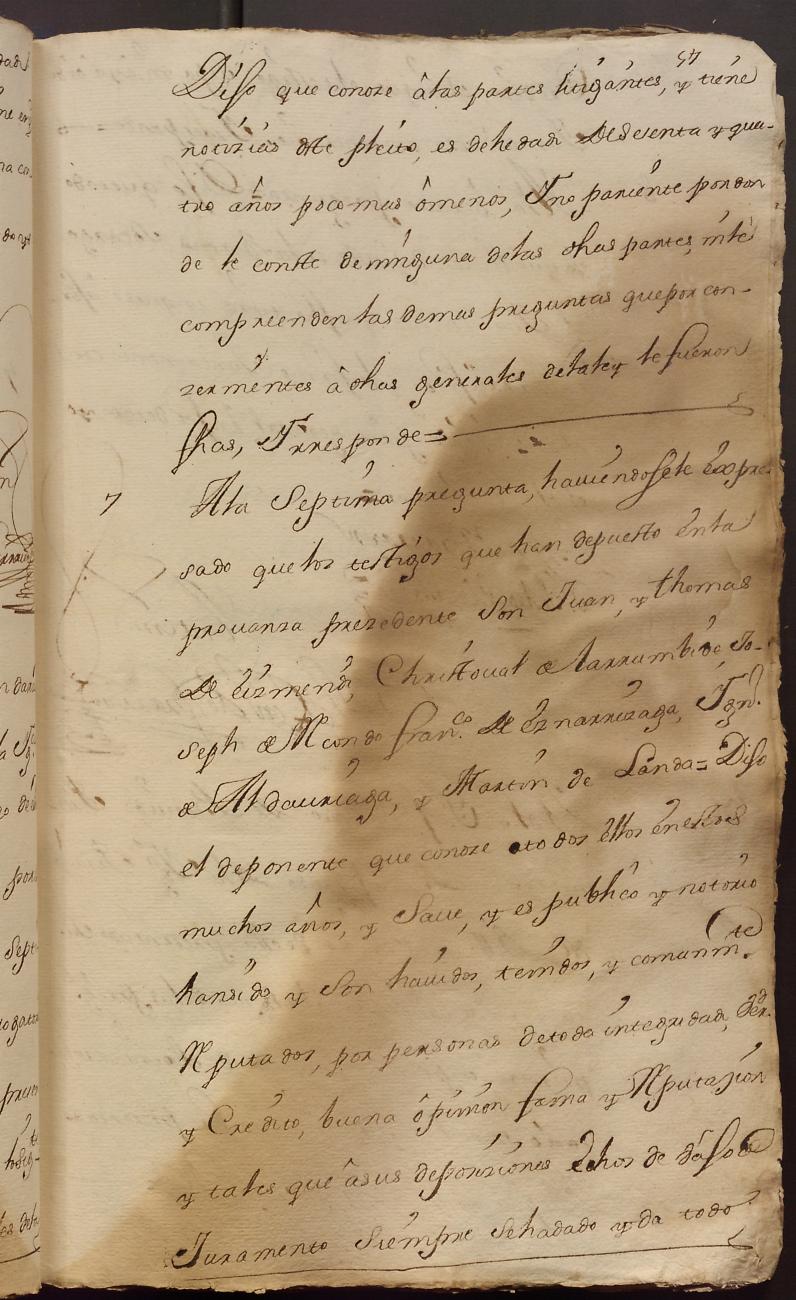 Diso que conoze â las partes litigântes, y tiene
notizias dste pleito, es dehedad de sesenta y qua-
tro años poco mas ô menos, Y no pariênte pordon
de le conste de ninguna delas dhas partes, nile
comprenden las demas preguntas quepor con-
zernientes â dhas generales delaley le fueron
fhas, Y rresponde=
7 Ala Septima pregunta, haviendosele expre-
sado que los testigos que han depuesto enla
provanza prezedente Son Juan, y thomas
de Eizmendi, Christoual de Larrumbide Jo-
seph de Mcondo fran.co de Eznarrizaga, Ign.o
de Aldauriaga, y Martin de Landa= Diso
el deponente que conoze a todos ellos en estos
muchos años, y Save, y es publico y notorio
hansido y Son havidos, tenidos, y comunm.te
Rputados, por personas detoda integridad, Ver.d
y Credito, buena ôpinion fama y Rputazion
y tales que âsus deposiziones dichos de vaso de
Juramento siempre sehadado y da todo